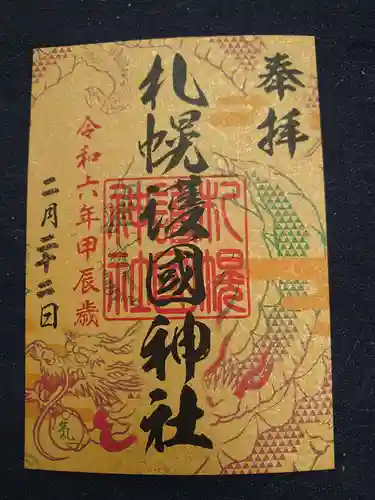 奉拝
札幌護國神社
札幌護國神社
令和六年甲辰歳
二月二十二日